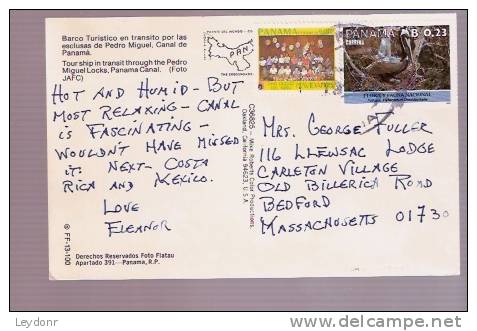 Barco Turístico en transito por las
esclusas de Pedro Miguel, Canal de
Panamá.
Tour ship in transit through the Pedro
Miguel Locks, Panama Canal. (Foto
JAFC)
HOT AND HUMID - BUT
MOST RELAXING - CANAL
IS FASCINATING -
WOULDN'T HAVE MISSED
IT. NEXT - COSTA
RICA AND MEXICO.
LOVE
ELEANOR
® FF-13-100
Derechos Reservados Foto Flatau
Apartado 391 — Panama, R.P.
PUENTE DEL MUNDO
PAN
THE CROSSROADS
C36825
Mike Roberts Color Productions,
Oakland, California 94623, U.S.A.
NAVIDAD
PANAMA B 0.23
CORREOS
FLORA Y FAUNA NACIONAL
MRS. GEORGE FULLER
116 LLEWSAC LODGE
CARLETON VILLAGE
OLD BILLERICA ROAD
BEDFORD
MASSACHUSETTS 01730
Leydonr
delcampe.net